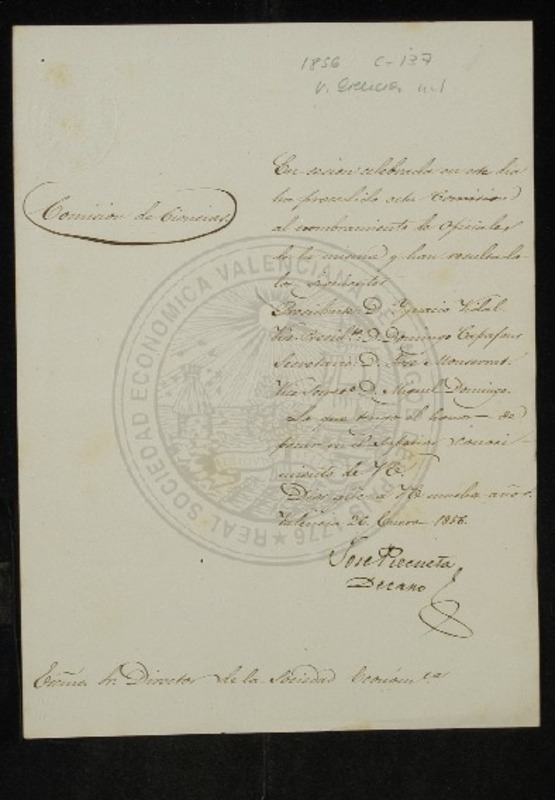 1856 C-137
V. Ciencias n.1
Comision de Ciencias
En sesion celebrada en este dia
ha procedido esta Comision
al nombramiento de Oficiales
de la misma y han resultado
los siguientes
Presidente D. Ignacio Vidal
Vice Presid.te D. Domingo Capafons
Secretario D. José Monserrat
Vice Secret.o D. Miguel Domingo.
Lo que tengo el honor de
poner en el superior conoci-
miento de V.E.
Dios gde a VE muchos años.
Valencia 26 Enero 1856.
José Pizcueta
Decano
Exmo. Sr. Director de la Sociedad Económ.ca
REAL SOCIEDAD ECONOMICA VALENCIANA DE AMIGOS DEL PAIS
1776